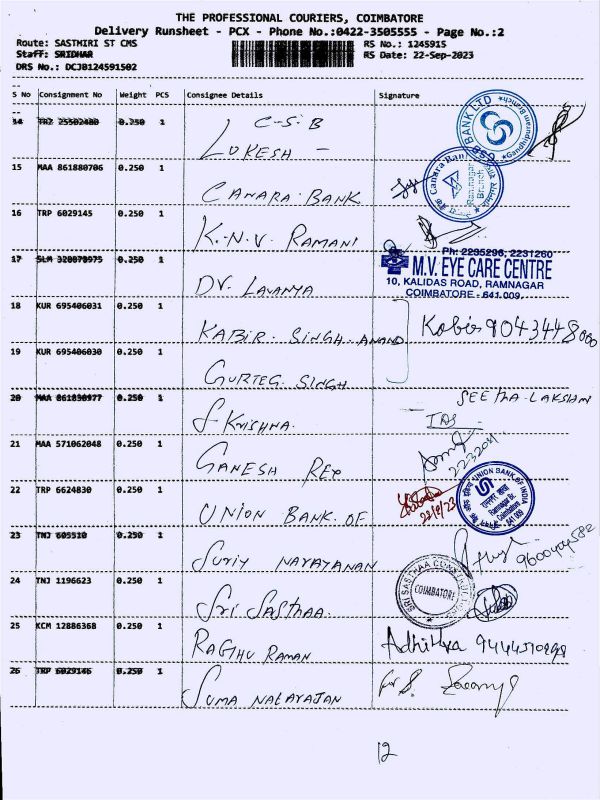 THE PROFESSIONAL COURIERS, COIMBATORE
Delivery Runsheet - PCX - Phone No.:0422-3505555 - Page No.:2
Route: SASTHIRI ST CMS RS No.: 1245915
Staff: SRIDHAR RS Date: 22-Sep-2023
DRS No.: DCJ0124591502
S No Consignment No Weight PCS Consignee Details Signature
14 TRZ 25502480 0.250 1 C-S-B LOKESH - BANK LTD
15 MAA 861880706 0.250 1 CANARA BANK Canara Ramnagar Branch
16 TRP 6029145 0.250 1 K.N.V. RAMANI
Ph: 2295296, 2231260
17 SLM 320879975 0.250 1 DV. LAVANYA M.V. EYE CARE CENTRE
10, KALIDAS ROAD, RAMNAGAR
COIMBATORE - 641 009.
18 KUR 695406031 0.250 1 KABIR. SINGH. ANAND
19 KUR 695406030 0.250 1 GURTEG. SINGH
20 MAA 861830977 0.250 1 S KRISHNA. SEETHA LAKSHMI
21 MAA 571062048 0.250 1 GANESH
22 TRP 6624830 0.250 1 UNION BANK OF 22/9/23 UNION BANK OF INDIA
23 TNJ 605510 0.250 1 SURIY NARAYANAN
24 TNJ 1196623 0.250 1 SRI SASTHAA. SRI SASTHAA COIMBATORE
25 KCM 12886368 0.250 1 RAGHU RAMAN Adhithya
26 TRP 6029146 0.250 1 SUMA NATARAJAN for S.
12